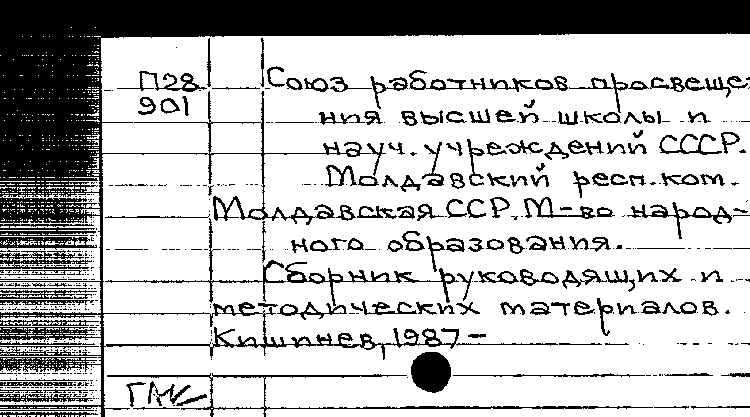 П28 Союз работников просвеще-
901 ния высшей школы и
науч. учреждений СССР.
Молдавский респ. ком.
Молдавская ССР. М-во народ-
ного образования.
Сборник руководящих и
методических материалов.
Кишинев, 1987 -